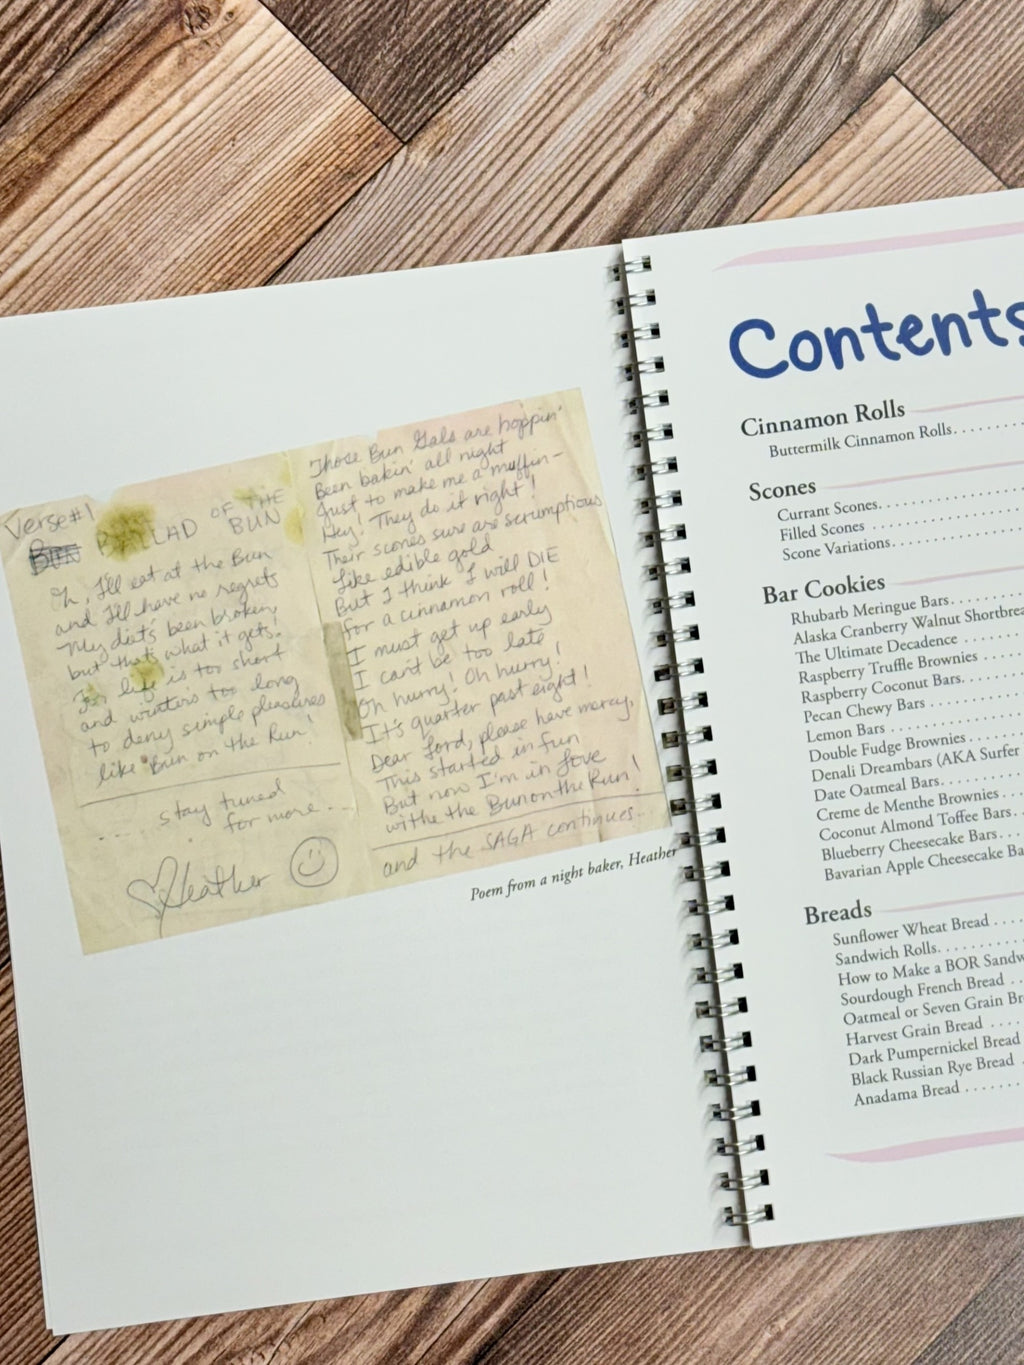 Verse #1
BUN BALLAD OF THE
BUN
Oh, I'll eat at the Bun
and I'll have no regrets
My diet's been broken,
but that's what it gets!
For life is too short
and winter's too long
to deny simple pleasures
like Bun on the Run!
.... stay tuned
for more...
Heather
Those Bun Gals are hoppin'
Been bakin' all night
Just to make me a muffin–
Hey! They do it right!
Their scones sure are scrumptious
Like edible gold
But I think I will DIE
for a cinnamon roll!
I must get up early
I can't be too late
Oh hurry! Oh hurry!
It's quarter past eight!
Dear Lord, please have mercy,
This started in fun
But now I'm in love
withe the Bun on the Run!
and the SAGA continues...
Poem from a night baker, Heather
Contents
Cinnamon Rolls
Buttermilk Cinnamon Rolls
Scones
Currant Scones
Filled Scones
Scone Variations
Bar Cookies
Rhubarb Meringue Bars
Alaska Cranberry Walnut Shortbrea
The Ultimate Decadence
Raspberry Truffle Brownies
Raspberry Coconut Bars
Pecan Chewy Bars
Lemon Bars
Double Fudge Brownies
Denali Dreambars (AKA Surfer
Date Oatmeal Bars
Creme de Menthe Brownies
Coconut Almond Toffee Bars
Blueberry Cheesecake Bars
Bavarian Apple Cheesecake Ba
Breads
Sunflower Wheat Bread
Sandwich Rolls
How to Make a BOR Sandw
Sourdough French Bread
Oatmeal or Seven Grain Br
Harvest Grain Bread
Dark Pumpernickel Bread
Black Russian Rye Bread
Anadama Bread